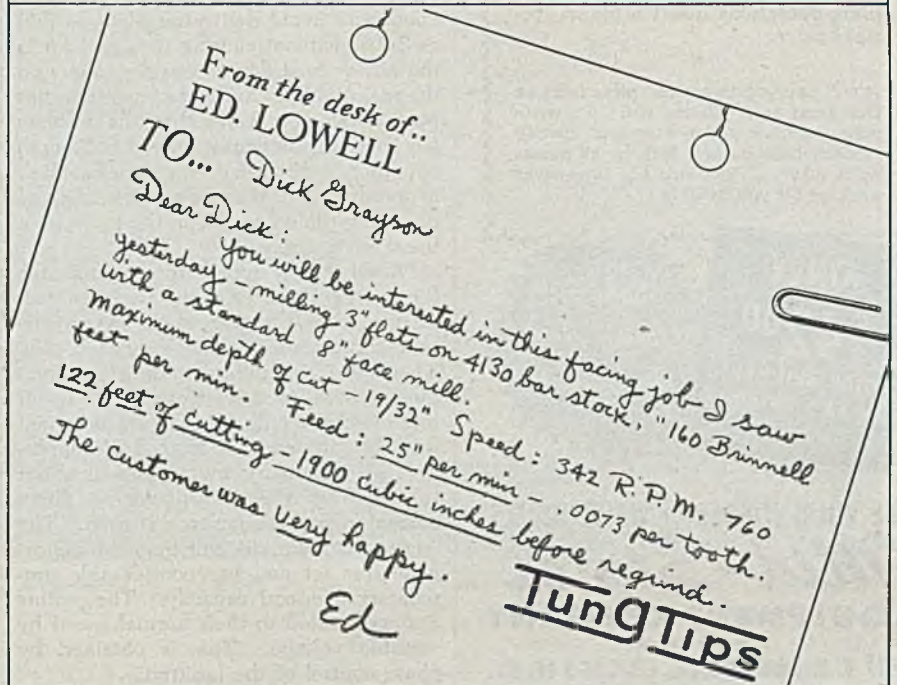 From the desk of..
ED. LOWELL
TO... Dick Grayson
Dear Dick:
You will be interested in this facing job I saw
yesterday - milling 3" flats on 4130 bar stock, "160 Brinnell
with a standard 8" face mill.
Maximum depth of cut - 19/32" Speed: 342 R.P.M. 760
feet per min. Feed: 25" per min - .0073 per tooth.
122 feet of cutting - 1900 cubic inches before regrind..
The customer was very happy.
Ed
TungTips